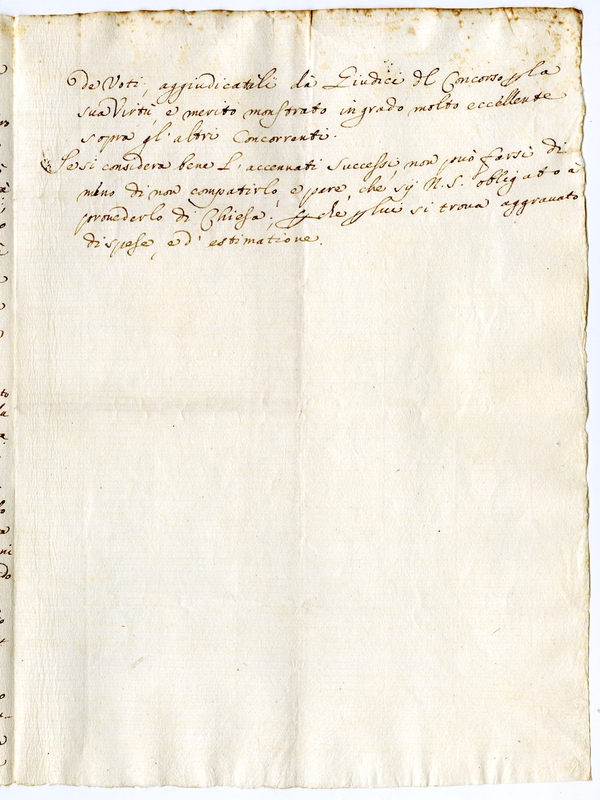 de Voti, aggiudicatili dà Giudici del Concorso p la
sua Virtù, e merito monstrato in grado molto eccellente
sopra gl'altri Concorrenti.
Se si considera bene l'accennati successi, non può farsi di
meno di non compatirlo, e pare, che sij N.S. obligato à
provederlo di Chiesa, p che più si trova aggravato
di spese, e d'estimatione.